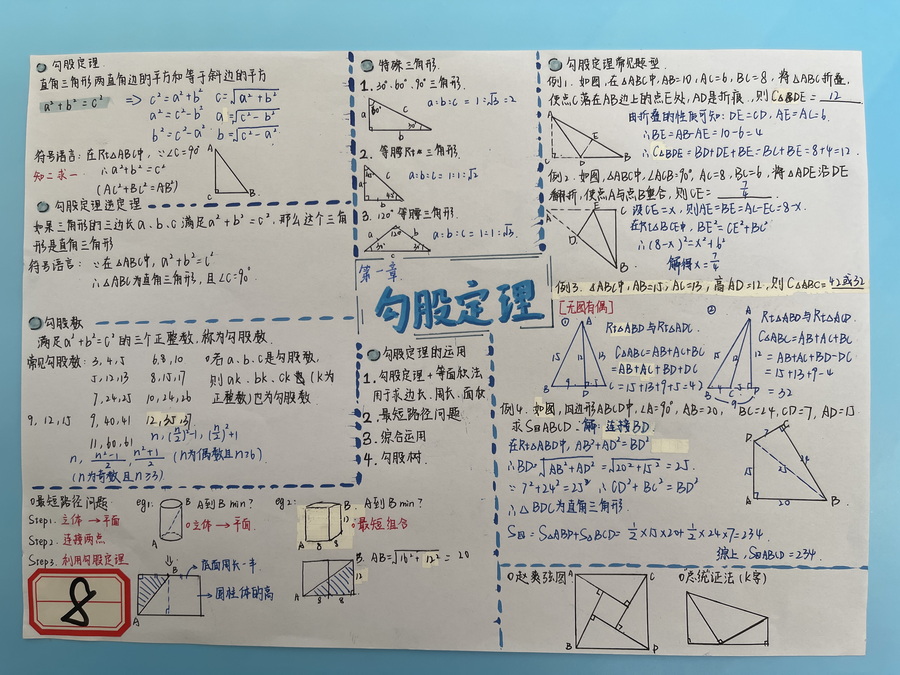 勾股定理
直角三角形两直角边的平方和等于斜边的平方
a²+b²=c² ⇒ c²=a²+b² c=√(a²+b²)
a²=c²-b² a=√(c²-b²)
b²=c²-a² b=√(c²-a²)
符号语言:在Rt△ABC中,∵∠C=90°
知二求一 ∴a²+b²=c²
(AC²+BC²=AB²)
A
C B
勾股定理逆定理
如果三角形的三边长a、b、c满足a²+b²=c²,那么这个三角
形是直角三角形
符号语言:∵在△ABC中,a²+b²=c²
∴△ABC为直角三角形,且∠C=90°
勾股数
满足a²+b²=c²的三个正整数,称为勾股数
常见勾股数:3,4,5 6,8,10 ①若a、b、c是勾股数,
5,12,13 8,15,17 则ak、bk、ck也(k为
7,24,25 10,24,26 正整数)也为勾股数
9,12,15 9,40,41 12,35,37
11,60,61 n,(n/2)²-1,(n/2)²+1
n,(n²-1)/2,(n²+1)/2 (n为偶数且n≥6)
(n为奇数且n≥3)
最短路径问题
Step1.立体→平面
Step2.连接两点
Step3.利用勾股定理
8
eg1: B A到B min?
立体→平面
A
B 底面周长一半
圆柱体的高
A
eg2: B A到B min?
最短组合
A 8 8
B AB=√(16²+12²)=20
12
A 8 8
特殊三角形
1.30°60°90°三角形
a c b 30°
a:b:c=1:√3:2
2.等腰Rt三角形
a c b 45°
a:b:c=1:1:√2
3.120°等腰三角形
a 120° b 30° 30° c
a:b:c=1:1:√3
第一章
勾股定理
勾股定理的运用
1.勾股定理+等面积法
用于求边长、周长、面积
2.最短路径问题
3.综合运用
4.勾股树
勾股定理常见题型
例1.如图,在△ABC中,AB=10,AC=6,BC=8,将△ABC折叠,
使点C落在AB边上的点E处,AD是折痕,则C△BDE=12
由折叠的性质可知:DE=CD,AE=AC=6
∴BE=AB-AE=10-6=4
∴C△BDE=BD+DE+BE=BC+BE=8+4=12
A E D B
例2.如图,△ABC中,∠ACB=90°,AC=8,BC=6,将△ADE沿DE
翻折,使点A与点B重合,则CE=7/4
设CE=x,则AE=BE=AC-EC=8-x
在Rt△BCE中,BE²=CE²+BC²
∴(8-x)²=x²+6²
解得x=7/4
A E C D B
例3.△ABC中,AB=15,AC=13,高AD=12,则C△ABC=42或32
[无图有偶]
① Rt△ABD与Rt△ADC
C△ABC=AB+AC+BC
=AB+AC+BD+DC
=15+13+9+5=42
A 15 12 13 B 9 D 5 C
② Rt△ABD与Rt△ACD
C△ABC=AB+AC+BC
=AB+AC+BD-DC
=15+13+9-4
=32
A 15 12 B C 5 D 9
例4.如图,四边形ABCD中,∠A=90°,AB=20,BC=24,CD=7,AD=15
求S四ABCD 解:连接BD
在Rt△ABD中,AB²+AD²=BD²
∴BD=√(AB²+AD²)=√(20²+15²)=25
∵7²+24²=25² ∴CD²+BC²=BD²
∴△BDC为直角三角形
S四=S△ABD+S△BCD=½×15×20+½×24×7=234
综上,S四ABCD=234
D 7 C 24 15 A 20 B
赵爽弦图
A C
B D
总统证法(K字)